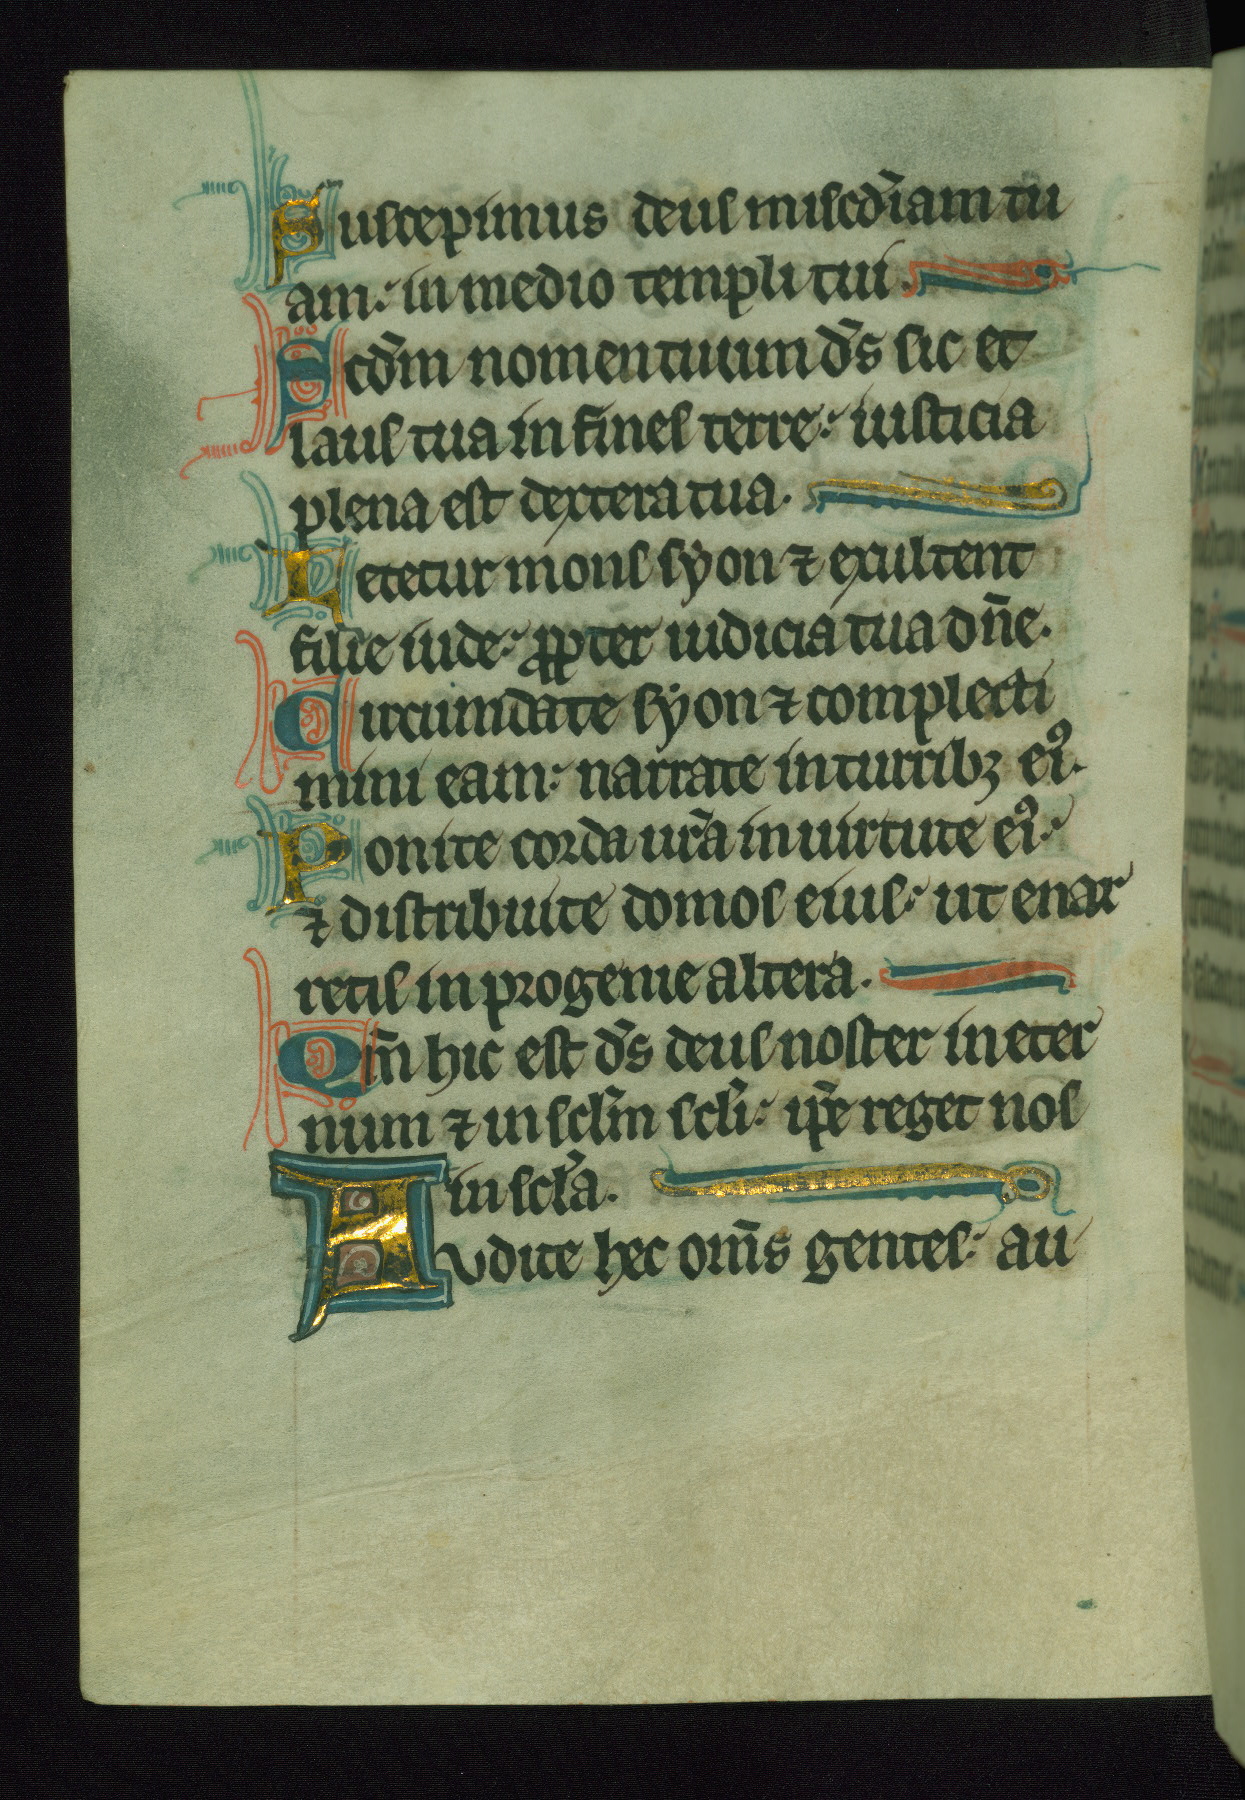 Suscepimus deus misc̄diam tu
am: in medio templi tui.
Scd̄m nomen tuum d̄s sic et
laus tua in fines terre: iusticia
plena est dextera tua.
Letetur mons syon ⁊ exultent
filie iude: propter iudicia tua dn̄e.
Circumdate syon ⁊ complecti
mini eam: narrate in turribꝫ eiꝰ.
Ponite corda ur̄a in uirtute eiꝰ:
⁊ distribuite domos eius: ut enar
retis in progenie altera.
Qm̄ hic est d̄s deus noster in eter
num ⁊ in scl̄m scl̄i: ip̄e reget nos
in scl̄a.
Audite hec om̄s gentes: au